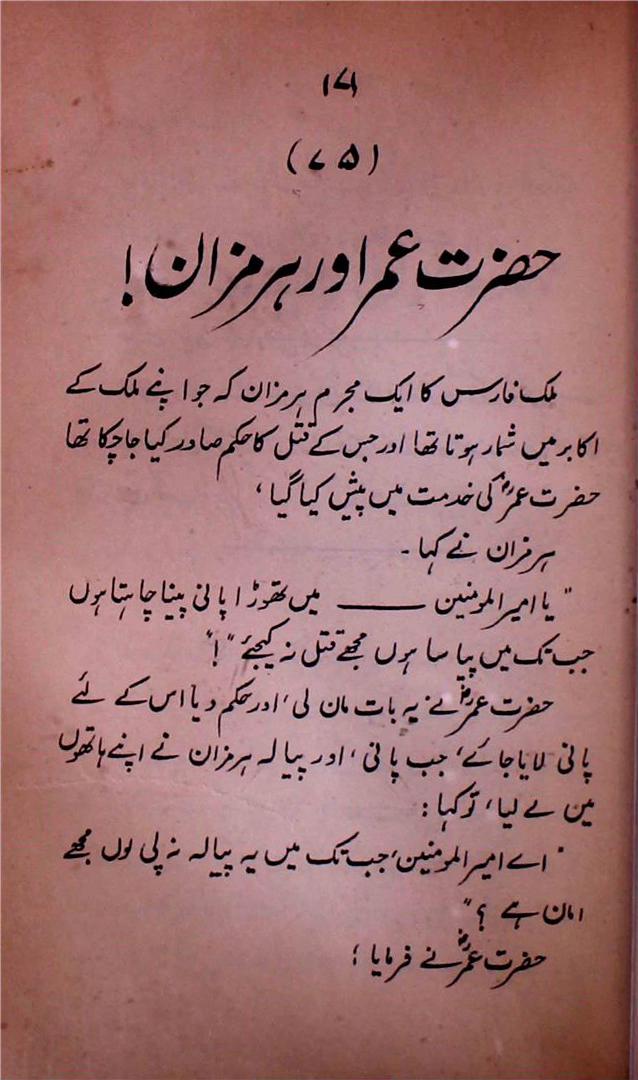 (۷۵)
حضرت عمر اور ہرمزان!
ملک فارس کا ایک مجرم ہرمزان کہ جو اپنے ملک کے
اکابر میں شمار ہوتا تھا اور جس کے قتل کا حکم صادر کیا جا چکا تھا
حضرت عمرؓ کی خدمت میں پیش کیا گیا،
ہرمزان نے کہا۔
"یا امیر المومنین ــــــ میں تھوڑا پانی پینا چاہتا ہوں
جب تک میں پیاسا ہوں مجھے قتل نہ کیجئے"!"
حضرت عمرؓ نے یہ بات مان لی، اور حکم دیا اس کے لئے
پانی لایا جائے، جب پانی، اور پیالہ ہرمزان نے اپنے ہاتھوں
میں لے لیا، تو کہا:
"اے امیر المومنین، جب تک میں یہ پیالہ نہ پی لوں مجھے
امان ہے؟"
حضرت عمرؓ نے فرمایا؛